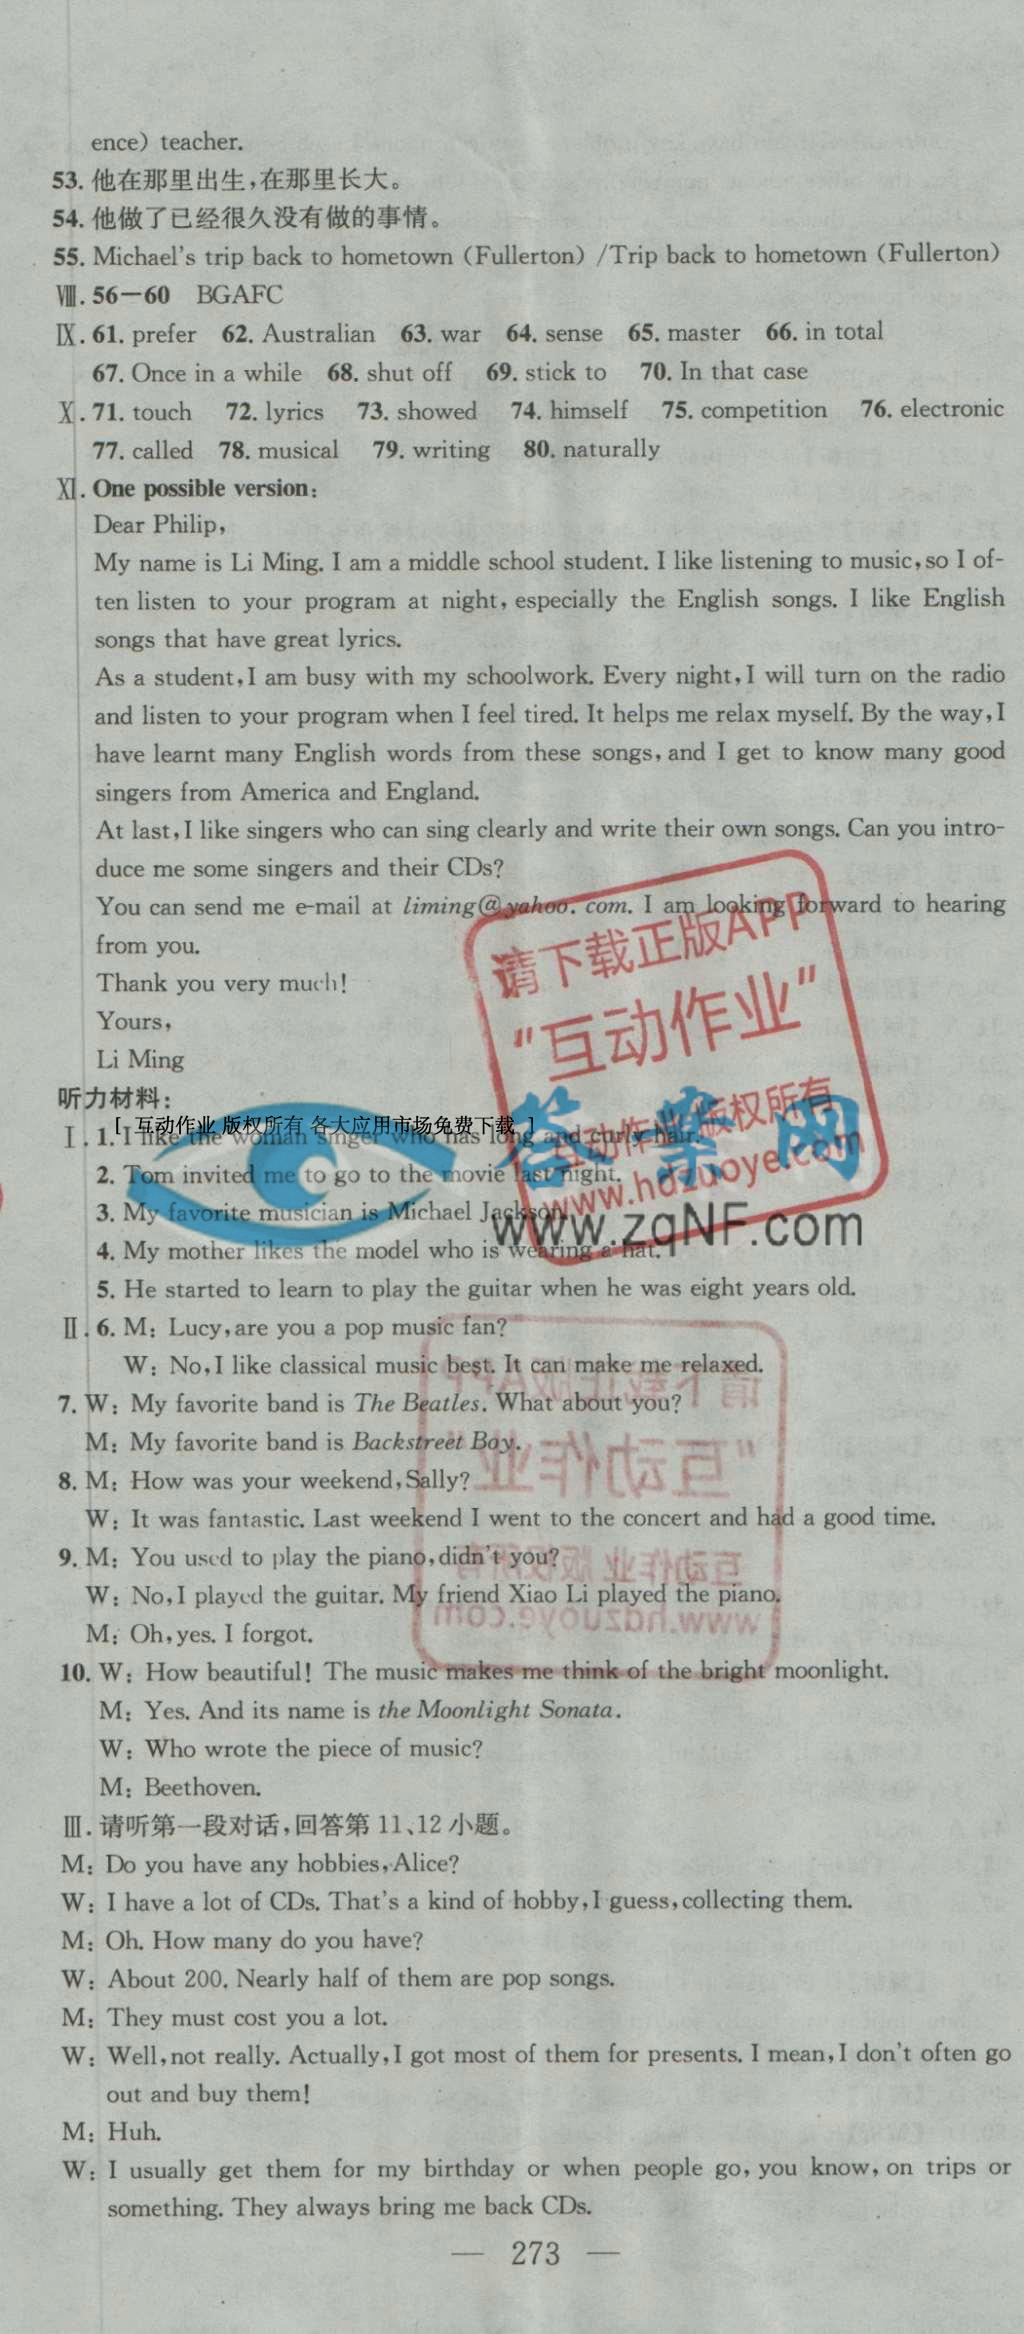 ence) teacher.
53. 他在那里出生,在那里长大。
54. 他做了已经很久没有做的事情。
55. Michael's trip back to hometown (Fullerton) /Trip back to hometown (Fullerton)
Ⅷ. 56—60 BGAFC
Ⅸ. 61. prefer 62. Australian 63. war 64. sense 65. master 66. in total
67. Once in a while 68. shut off 69. stick to 70. In that case
Ⅹ. 71. touch 72. lyrics 73. showed 74. himself 75. competition 76. electronic
77. called 78. musical 79. writing 80. naturally
Ⅺ. One possible version:
Dear Philip,
My name is Li Ming. I am a middle school student. I like listening to music, so I of-
ten listen to your program at night, especially the English songs. I like English
songs that have great lyrics.
As a student, I am busy with my schoolwork. Every night, I will turn on the radio
and listen to your program when I feel tired. It helps me relax myself. By the way, I
have learnt many English words from these songs, and I get to know many good
singers from America and England.
At last, I like singers who can sing clearly and write their own songs. Can you intro-
duce me some singers and their CDs?
You can send me e-mail at liming@yahoo.com. I am looking forward to hearing
from you.
Thank you very much!
Yours,
Li Ming
请下载正版APP
"互动作业"
互动作业 版权所有
www.hdzuoye.com
听力材料:
[ 互动作业 版权所有 各大应用市场免费下载 ]
答案网
www.zqNF.com
Ⅰ. 1. I like the woman singer who has long and curly hair.
2. Tom invited me to go to the movie last night.
3. My favorite musician is Michael Jackson.
4. My mother likes the model who is wearing a hat.
5. He started to learn to play the guitar when he was eight years old.
Ⅱ. 6. M: Lucy, are you a pop music fan?
W: No, I like classical music best. It can make me relaxed.
7. W: My favorite band is The Beatles. What about you?
M: My favorite band is Backstreet Boy.
8. M: How was your weekend, Sally?
W: It was fantastic. Last weekend I went to the concert and had a good time.
9. M: You used to play the piano, didn't you?
W: No, I played the guitar. My friend Xiao Li played the piano.
M: Oh, yes. I forgot.
10. W: How beautiful! The music makes me think of the bright moonlight.
M: Yes. And its name is the Moonlight Sonata.
W: Who wrote the piece of music?
M: Beethoven.
Ⅲ. 请听第一段对话,回答第 11、12 小题。
M: Do you have any hobbies, Alice?
W: I have a lot of CDs. That's a kind of hobby, I guess, collecting them.
M: Oh. How many do you have?
W: About 200. Nearly half of them are pop songs.
M: They must cost you a lot.
W: Well, not really. Actually, I got most of them for presents. I mean, I don't often go
out and buy them!
M: Huh.
W: I usually get them for my birthday or when people go, you know, on trips or
something. They always bring me back CDs.
— 273 —